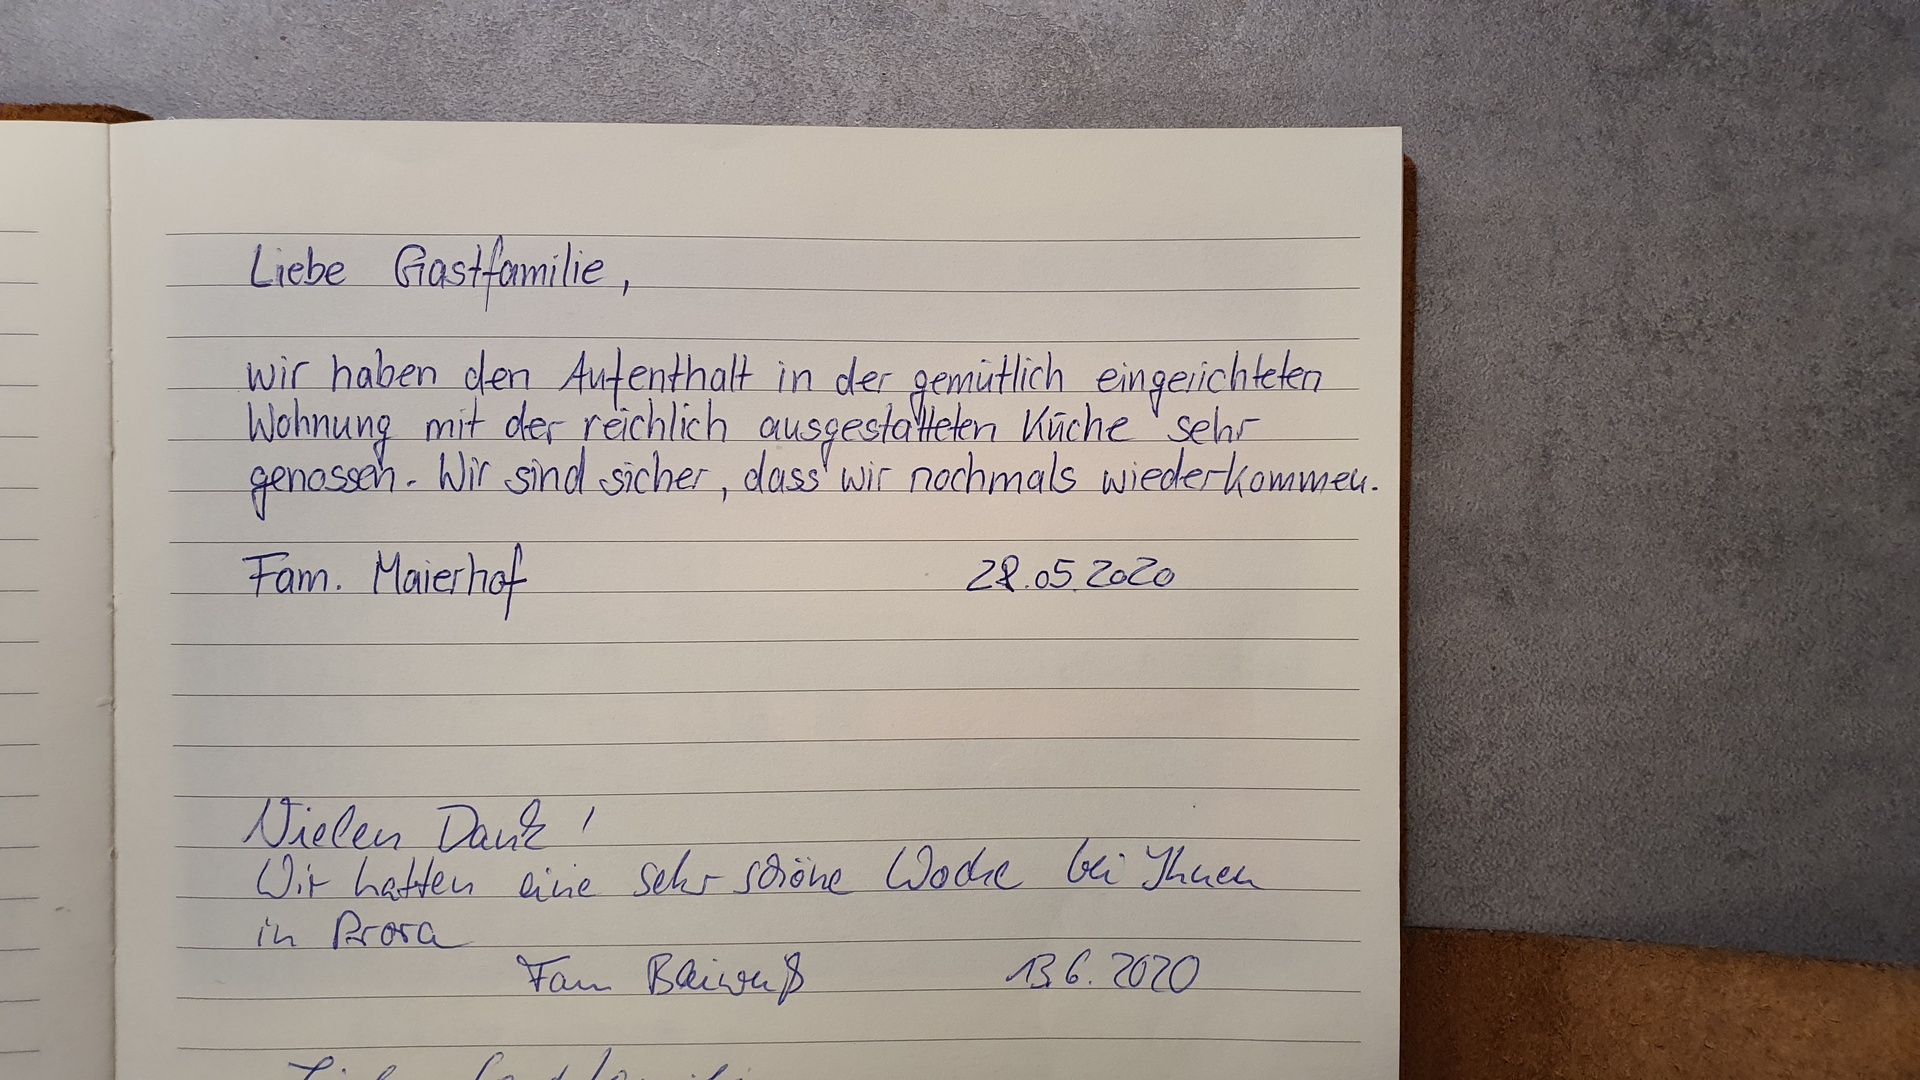 Liebe Gastfamilie,
wir haben den Aufenthalt in der gemütlich eingerichteten
Wohnung mit der reichlich ausgestatteten Küche sehr
genossen. Wir sind sicher, dass wir nochmals wiederkommen.
Fam. Maierhof 28.05.2020
Vielen Dank!
Wir hatten eine sehr schöne Woche bei Ihnen
in Prora
Fam 13.6.2020